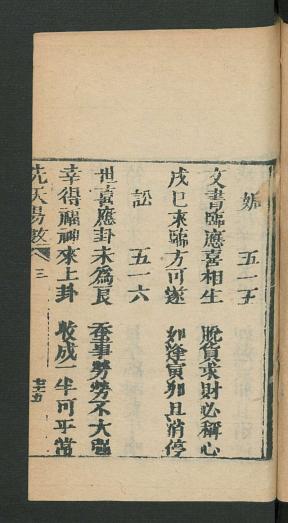 姤 五一五
文書臨應喜相生 脫貨求財必稱心
戌巳來臨方可遂 卯逢寅卯且消停
訟 五一六
世喜應卦未為良 至事勞勞不大亨
幸得福神來上卦 收成一半可平常
先天易數 三